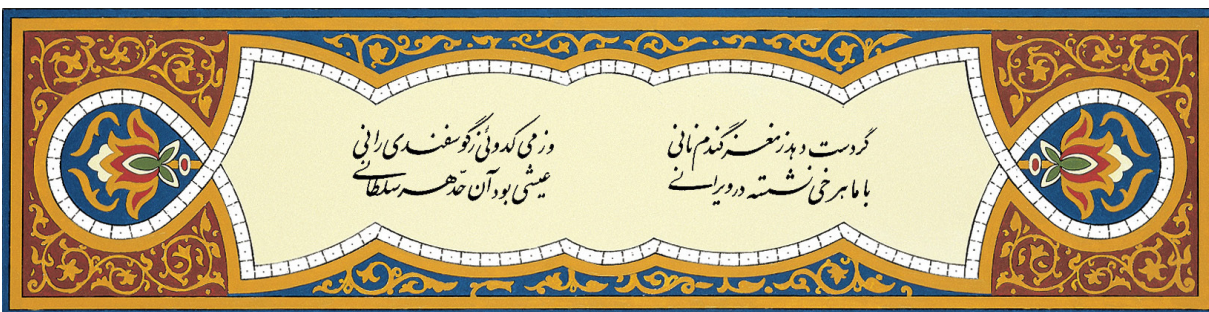 گر دست دهد ز مغز گندم نانی وز می کدوئی ز گوسفندی رانی
با ماهرخی نشسته در ویرانی عیشی بود آن حدّ هر سلطانی